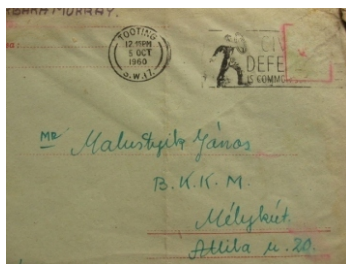 MURRAY.
TOOTING
12.15PM
5 OCT
1960
S.W.17.
DEFE
IS COMM
Mr Malustyik János
B.K.K.M.
Mélykút.
Attila u. 20.